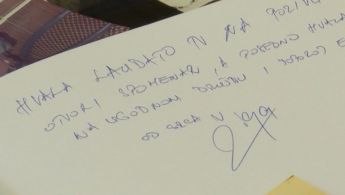 HVALA LAUDATO TV NA POZIVU
OTVORI SPOMENAR (A POSEBNO HVALA
NA UGODNOM DRUŠTVU I
OD SRCA